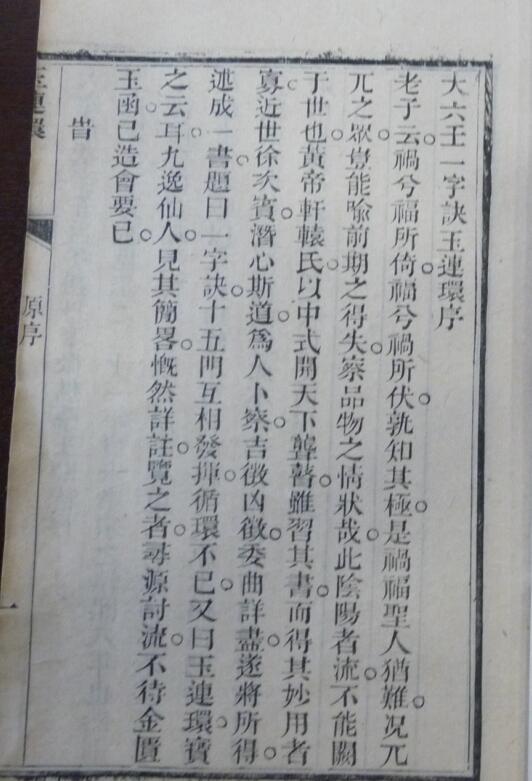 大六壬一字訣玉連環序
老子云禍兮福所倚福兮禍所伏孰知其極是禍福聖人猶難况元
兀之眾豈能喻前期之得失察品物之情狀哉此陰陽者流不能闕
于世也黃帝軒轅氏以中式開天下聾瞽雖習其書而得其妙用者
寡近世徐次賓潛心斯道為人卜察吉徵凶徵委曲詳盡遂將所得
述成一書題曰一字訣十五門互相發揮循環不已又曰玉連環寶
之云耳九逸仙人見其簡畧慨然詳註覽之者尋源討流不待金匱
玉函已造會要已
旹
連環
原序
一